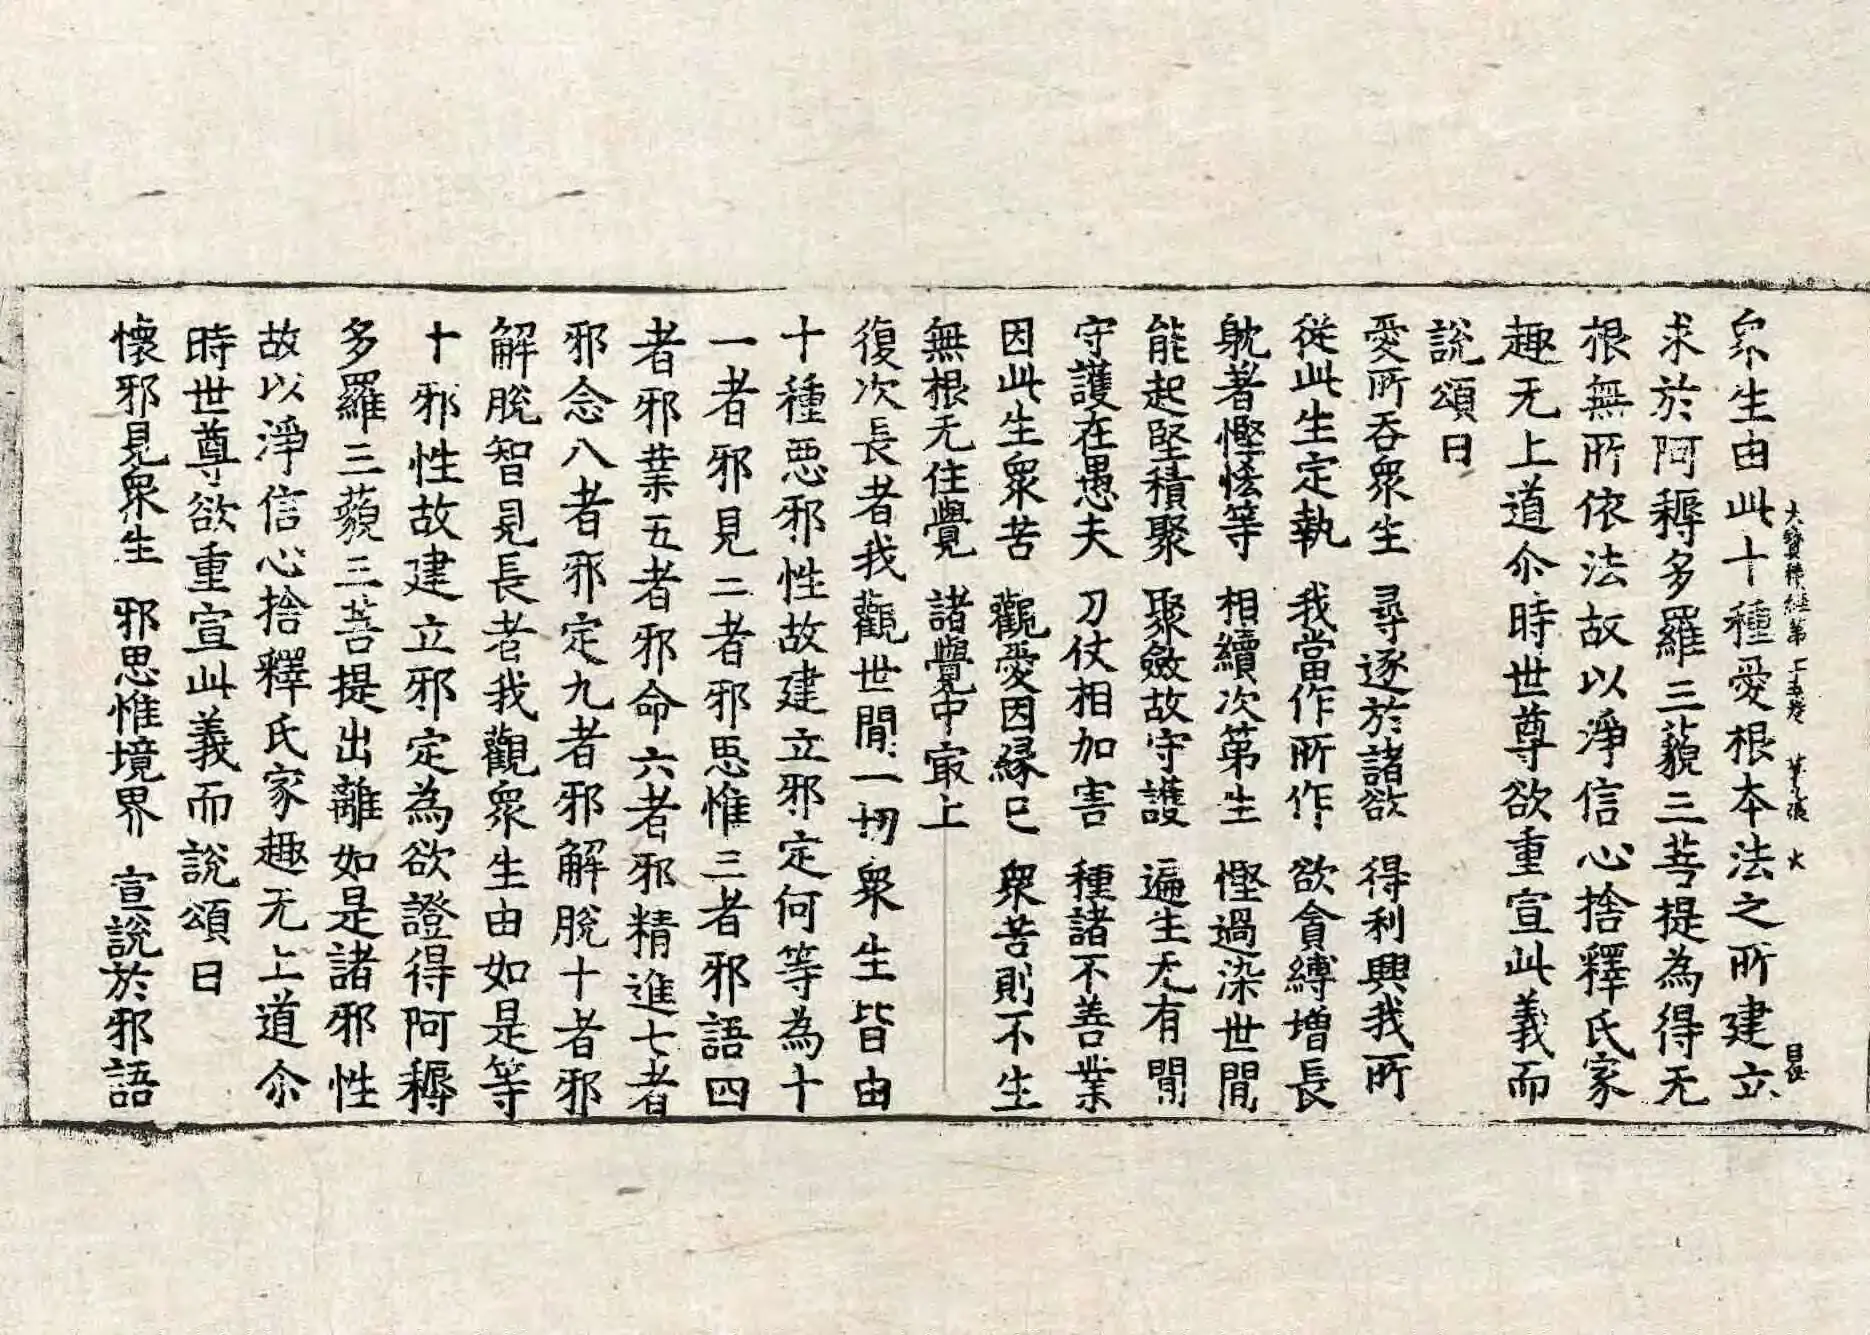 衆生由此十種愛根本法之所建立
求於阿耨多羅三藐三菩提為得无
根無所依法故以淨信心捨釋氏家
趣无上道尒時世尊欲重宣此義而
說頌曰
愛所吞衆生 尋逐於諸欲 得利興我所
從此生定執 我當作所作 欲貪縛增長
躭著慳悋等 相續次第生 慳過染世間
能起堅積聚 聚斂故守護 遍生无有間
守護在愚夫 刀仗相加害 種諸不善業
因此生衆苦 觀愛因緣已 衆苦則不生
無根无住覺 諸覺中冣上
復次長者我觀世間一切衆生皆由
十種惡邪性故建立邪定何等為十
一者邪見二者邪思惟三者邪語四
者邪業五者邪命六者邪精進七者
邪念八者邪定九者邪解脫十者邪
解脫智見長者我觀衆生由如是等
十邪性故建立邪定為欲證得阿耨
多羅三藐三菩提出離如是諸邪性
故以淨信心捨釋氏家趣无上道尒
時世尊欲重宣此義而說頌曰
懷邪見衆生 邪思惟境界 宣說於邪語